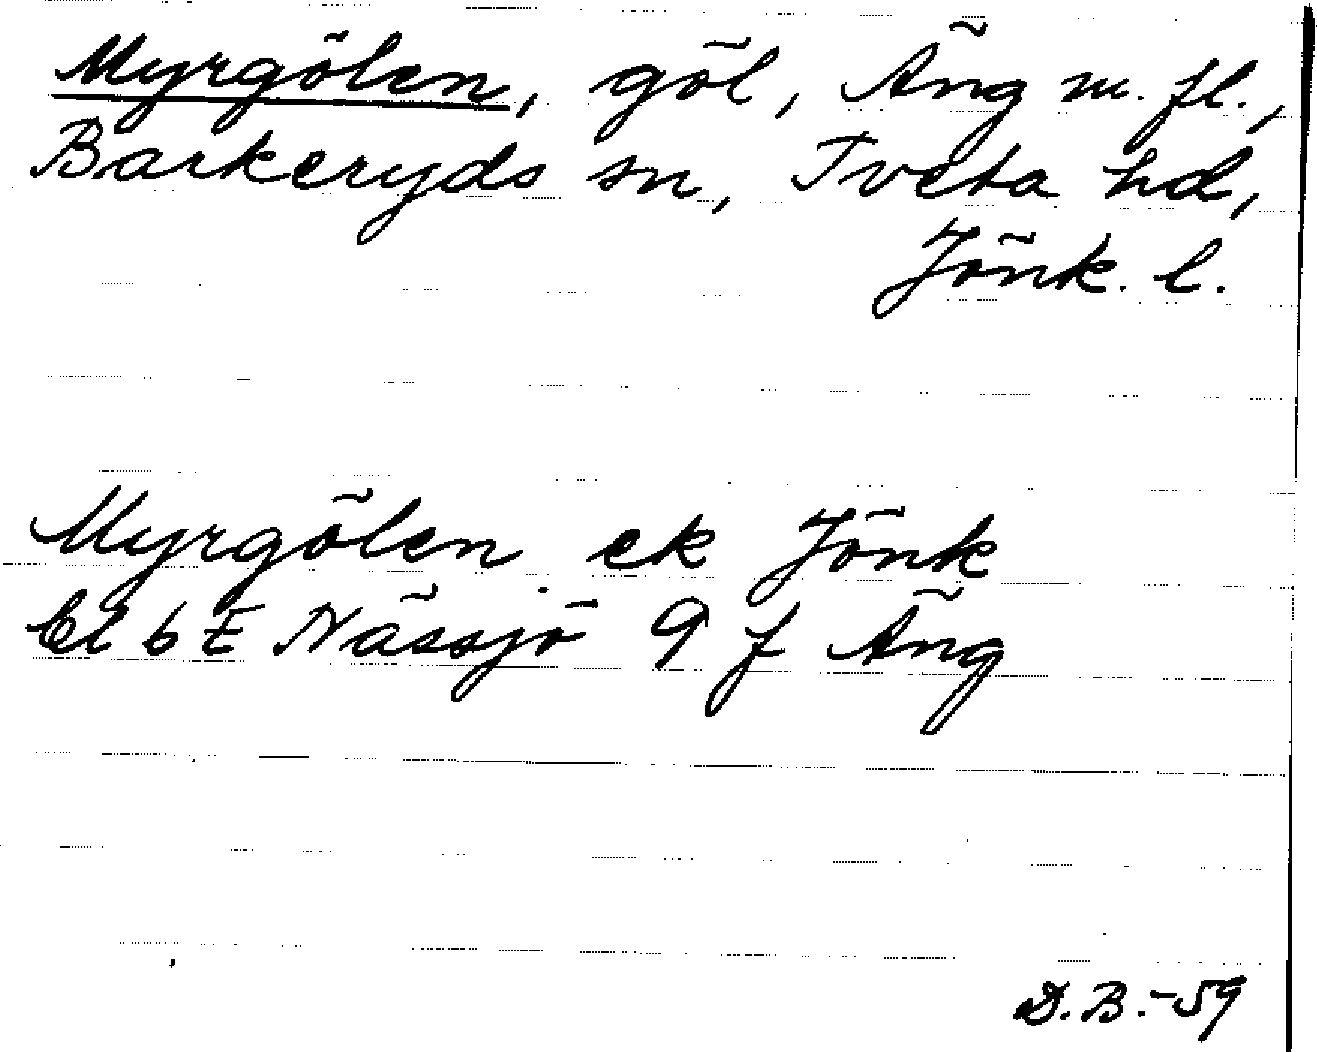 Myrgölen, göl, Äng m. fl.,
Barkeryds sn, Tveta hd,
Jönk. l.
Myrgölen ek Jönk
bl 6 E Nässjö 9 f Äng
D.B.-59